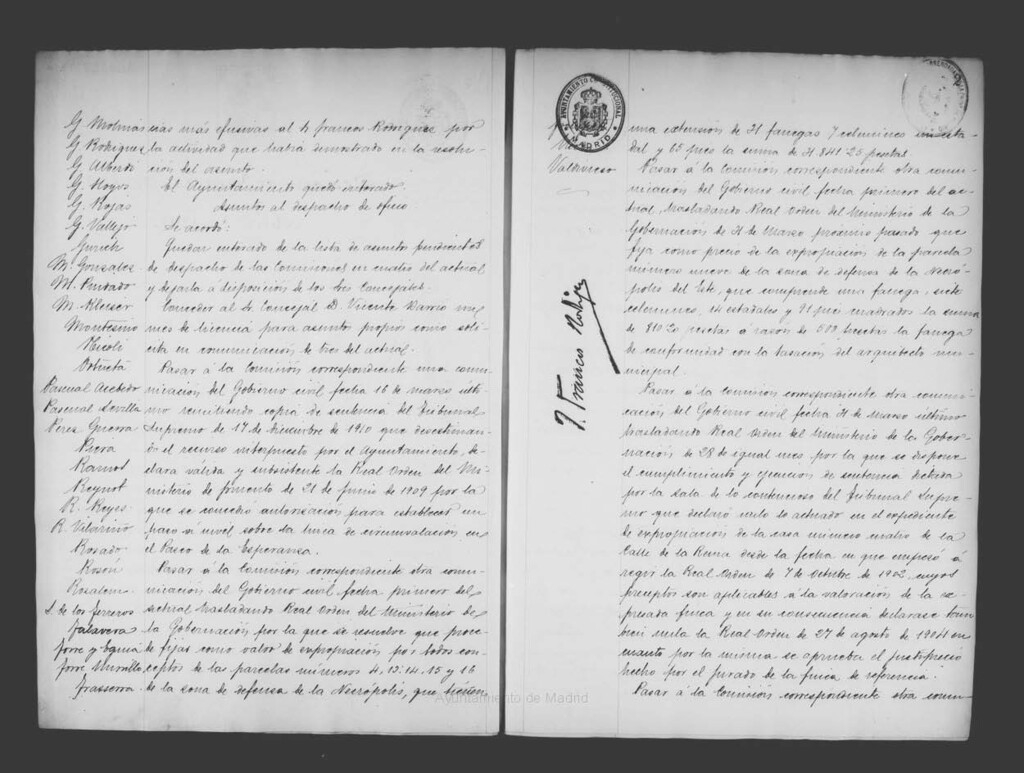 G. Molinas
G. Rodriguez
G. Alberto
G. Hoyos
G. Rojas
G. Vallejo
Gurich
M. Gonzalez
M. Pintado
M. Kleiser
Montesino
Nicoli
Ortueta
Pascual Acebedo
Pascual Sevilla
Perez Guerra
Piera
Ramos
Reynot
R. Reyes
R. Vilariño
Rosado
Rosón
Rosalem
S. de los Terreros
Talavera
Torre y Eguia
Torre Murillo
Trasserra
cias más efusivas al Sr. Francos Rodriguez por
la actividad que habia demostrado en la resolu-
cion del asunto.
El Ayuntamiento quedó enterado.
Asuntos al despacho de oficio
Se acordó:
Quedar enterado de la lista de asuntos pendientes
de despacho de las Comisiones en cuatro del actual
y dejarla á disposicion de los Sres Concejales.
Conceder al Sr. Concejal D. Vicente Barrio un
mes de licencia para asuntos propios como soli-
cita en comunicacion de tres del actual.
Pasar á la Comisión correspondiente una comu-
nicacion del Gobierno civil fecha 16 de marzo últi-
mo remitiendo copia de sentencia del Tribunal
Supremo de 17 de diciembre de 1910 que desestiman-
do el recurso interpuesto por el Ayuntamiento, de-
clara válida y subsistente la Real Orden del Mi-
nisterio de fomento de 21 de Junio de 1909 por la
que se concedio autorisacion para establecer un
paso á nivel sobre la linea de circunvalacion en
el Paseo de la Esperanza.
Pasar á la Comisión correspondiente otra comu-
nicacion del Gobierno civil fecha primero del
actual trasladando Real Orden del Ministerio de
la Gobernación por la que se resuelve que proce-
de fijar como valor de expropiacion por todos con-
ceptos de las parcelas números 4, 13, 14, 15 y 16
de la zona de defensa de la Necrópolis, que tienen
AYUNTAMIENTO CONSTITUCIONAL
MADRID
Valdivieso
J. Francos Rodríguez
una extension de 21 fanegas 7 celemines un esta-
dal y 65 pies la suma de 21.841'25 pesetas.
Pasar á la Comisión correspondiente otra comu-
nicacion del Gobierno civil fecha primero del ac-
tual, trasladando Real Orden del Ministerio de la
Gobernación de 21 de Marzo próximo pasado que
fija como precio de la expropiacion de la parcela
número nueve de la zona de defensa de la Necró-
polis del Este, que comprende una fanega, siete
celemines, 14 estadales y 91 pies cuadrados la suma
de pesetas á razon de 500 pesetas la fanega
de conformidad con la tasación del arquitecto mu-
nicipal.
Pasar á la Comisión correspondiente otra comu-
nicación del Gobierno civil fecha 21 de Marzo último
trasladando Real Orden del Ministerio de la Gober-
nacion de 28 de igual mes por la que se dispone
el cumplimiento y ejecución de sentencia dictada
por la sala de lo contencioso del Tribunal Supre-
mo que declaró nulo lo actuado en el expediente
de expropiacion de la casa número cuatro de la
Calle de la Reina desde la fecha en que empezó á
regir la Real Orden de 7 de Octubre de 1902, cuyos
preceptos son aplicables á la valoración de la ex-
presada finca y en su consecuencia declarase tam-
bien nula la Real Orden de 27 de agosto de 1904 en
cuanto por la misma se aprueba el justiprecio
hecho por el jurado de la finca de referencia.
Pasar á la Comisión correspondiente otra comu-
Ayuntamiento de Madrid